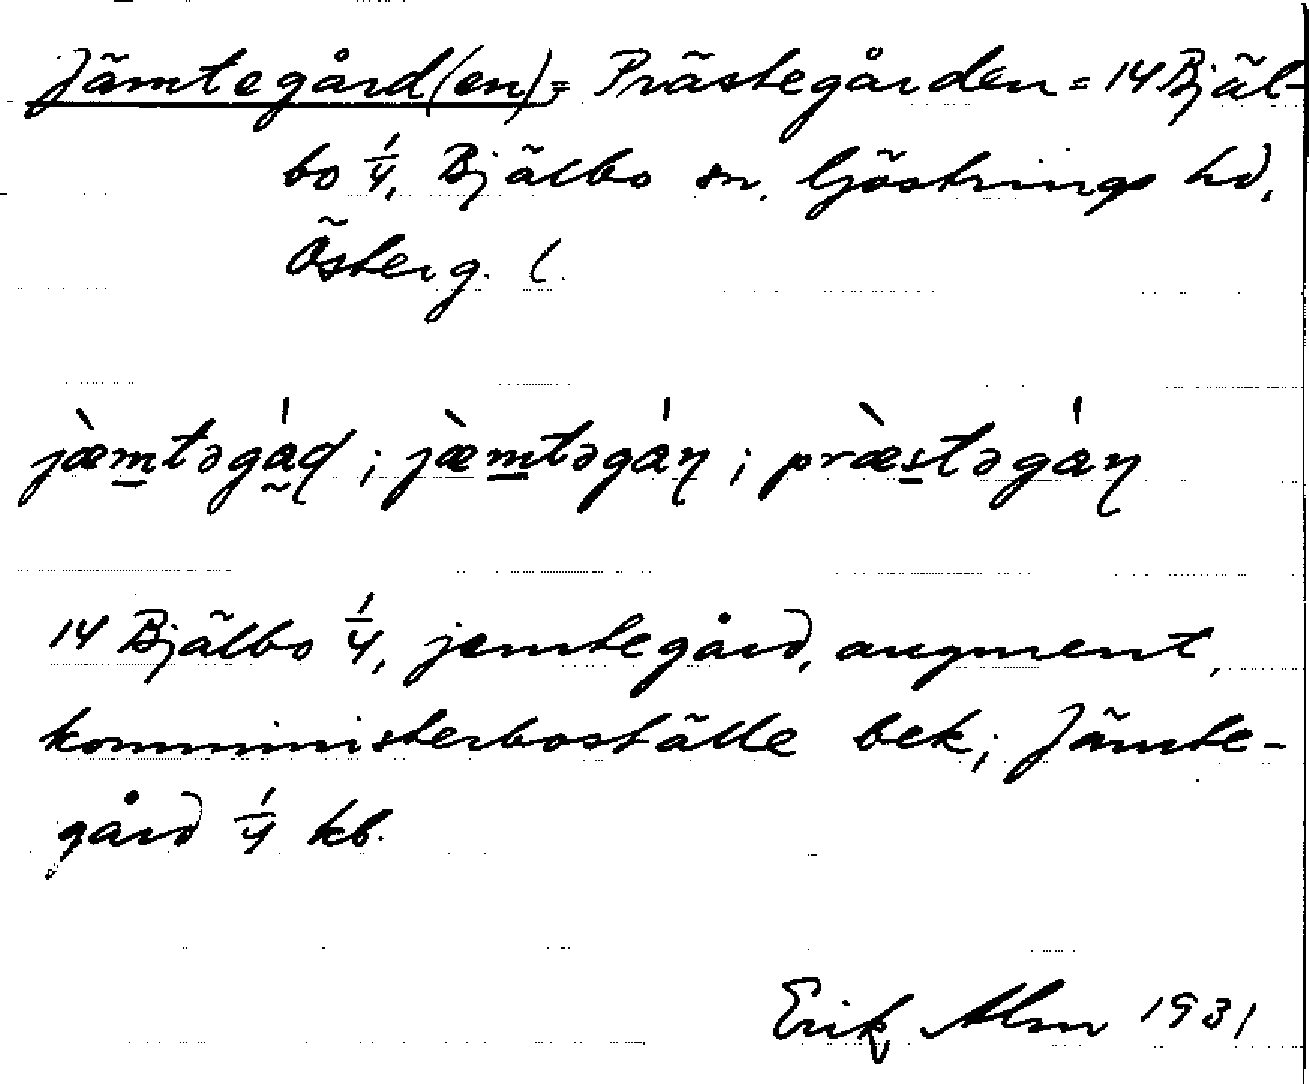 Jämtegård(en) = Prästegården = 14 Bjäl-
bo 1/4, Bjälbo sn. Göstrings hd,
Österg. l.
jæ̀m̲təgá̰ɖ ; jæ̀m̲təgáɳ ; præ̀s̲təgáɳ
14 Bjälbo 1/4, jemtegård, augment,
kommi­nisterboställe bek; Jämte-
gård 1/4 kb.
Erik Alm 1931